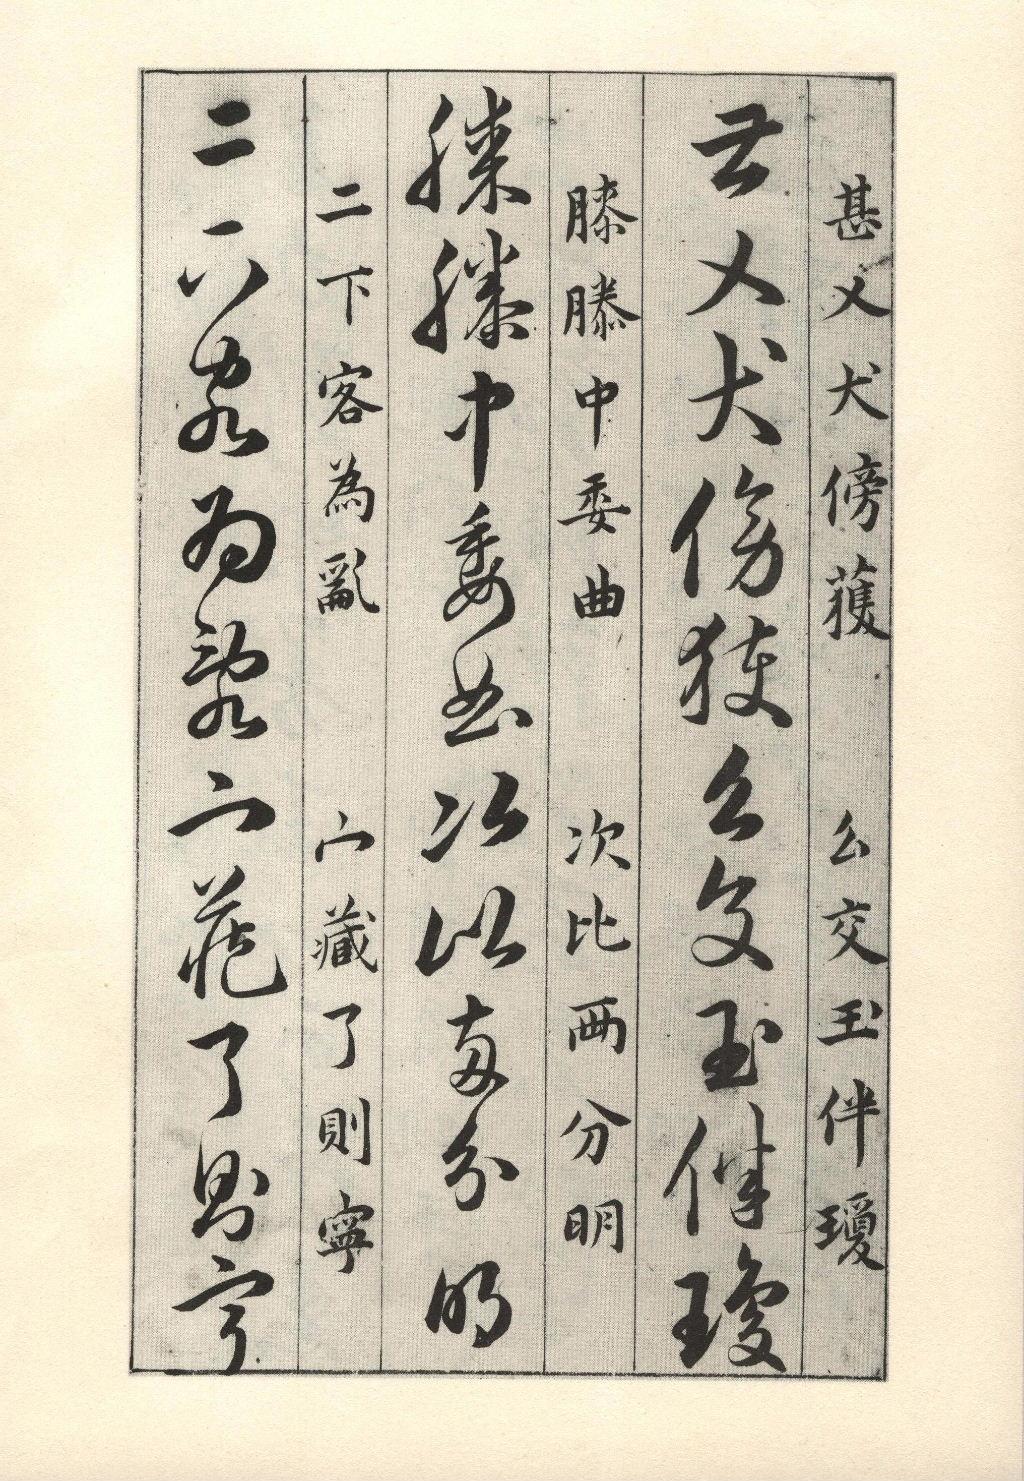 甚乂犬傍獲　么交玉伴瓊
甚乂犬傍獲么交玉伴瓊
膝滕中委曲　次比两分明
膝滕中委曲次比两分明
二下客為亂　宀藏了則寧
二下客為亂宀藏了則寧